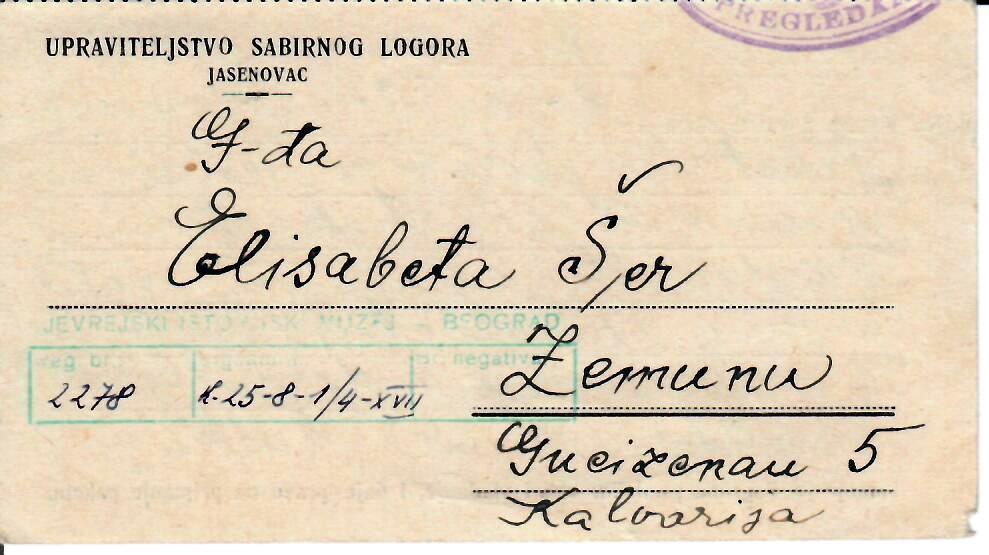 PREGLEDA
UPRAVITELJSTVO SABIRNOG LOGORA
JASENOVAC
G-đa
Elisabeta Šer
JEVREJSKI ISTORIJSKI MUZEJ - BEOGRAD
reg. br. signatura br. negativa
2278 K-25-8-1/4-XVII
Zemunu
5
Kalvarija